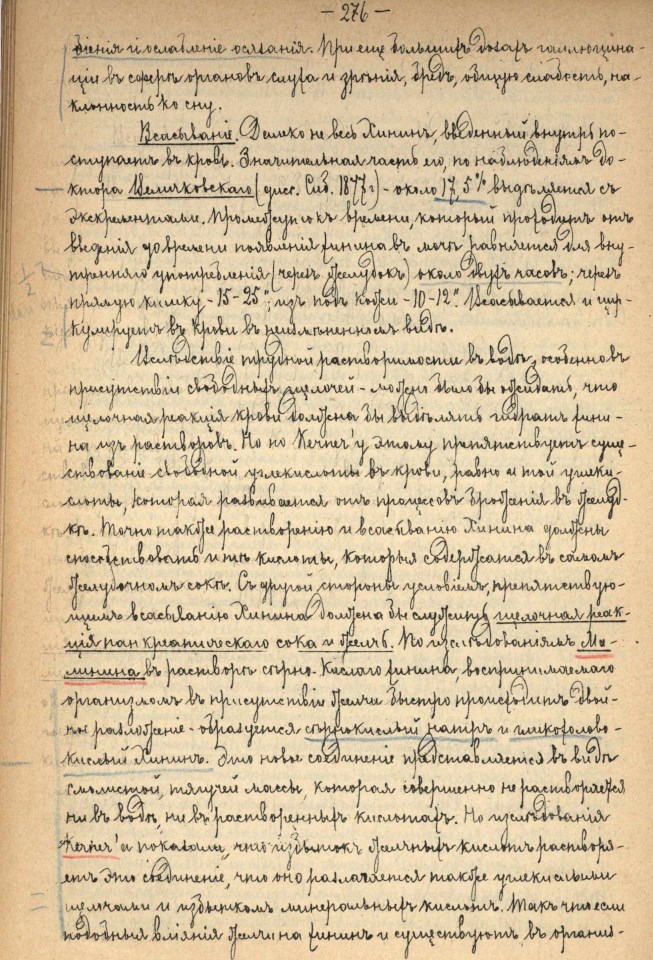 — 276 —
біенія и ослабленіе осязанія. При еще большихъ дозахъ галлюцина-
ціи въ сферѣ органовъ слуха и зрѣнія, бредъ, общую слабость, на-
клонность ко сну.
Всасываніе. Далеко не весь Хининъ, введенный внутрь по-
ступаетъ въ кровь. Значительная часть его, по наблюденіямъ до-
ктора Величковскаго (дисс. Спб. 1877 г) - около 17,5% выдѣляется съ
экскрементами. Промежутокъ времени, который проходитъ отъ
введенія до времени появленія хинина въ мочѣ равняется для вну-
тренняго употребленія (черезъ желудокъ) около двухъ часовъ; черезъ
прямую кишку - 15-25"; изъ подъ кожи - 10-12". Всасывается и цир-
кулируетъ въ крови въ неизмѣненномъ видѣ.
Вслѣдствіе трудной растворимости въ водѣ, особенно въ
присутствіи свободныхъ щелочей - можно было бы ожидать, что
щелочная реакція крови должна бы выдѣлять гидратъ хини-
на изъ растворовъ. Но по Kerner'у этому препятствуетъ суще-
ствованіе свободной углекислоты въ крови, равно и той углеки-
слоты, которая развивается отъ процессовъ броженія въ желуд-
кѣ. Точно также растворенію и всасыванію Хинина должны
способствовать и тѣ кислоты, которыя содержатся въ самомъ
желудочномъ сокѣ. Съ другой стороны условіемъ, препятствую-
щимъ всасыванію Хинина должна бы служить щелочная реак-
ція панкреатическаго сока и желчь. По изслѣдованіямъ Ма-
линина въ растворѣ сѣрно-кислаго хинина, воспринимаемаго
организмомъ въ присутствіи желчи быстро происходитъ двой-
ное разложеніе - образуется сѣрнокислый натръ и гликохолево-
кислый Хининъ. Это новое соединеніе представляется въ видѣ
смолистой, тягучей массы, которая совершенно не растворяется
ни въ водѣ, ни въ растворенныхъ кислотахъ. Но изслѣдованія
Kerner'а показали, что избытокъ желчныхъ кислотъ растворя-
етъ это соединеніе, что оно разлагается также углекислыми
щелочами и избыткомъ минеральныхъ кислотъ. Такъ что если
подобныя вліянія желчи на хининъ и существуютъ въ организ-